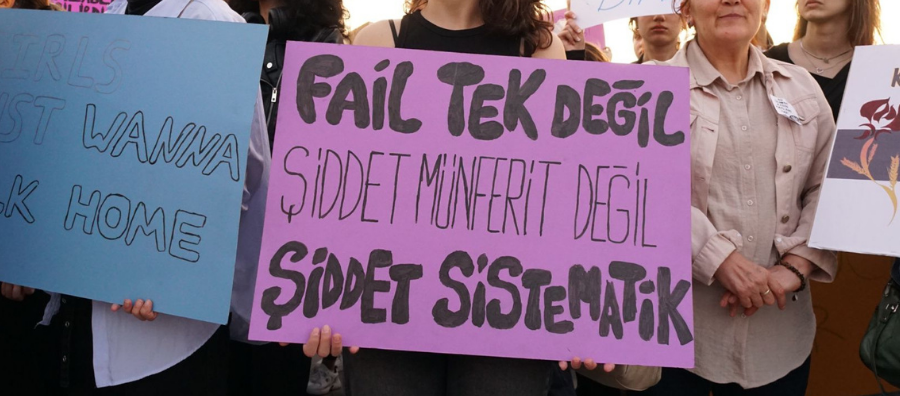 WANNA
HOME
FAİL TEK DEĞİL
ŞİDDET MÜNFERİT DEĞİL
ŞİDDET SİSTEMATİK